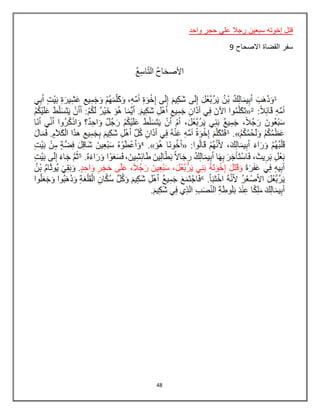 قتل إخوته سبعين رجلاً على حجر واحد
سفر القضاة الاصحاح 9
الأصحَاحُ التَّاسِعُ
1وَذَهَبَ أَبِيمَالِكُ بْنُ يَرُبَّعْلَ إِلَى شَكِيمَ إِلَى إِخْوَةِ أُمِّهِ، وَكَلَّمَهُمْ وَجَمِيعِ عَشِيرَةِ بَيْتِ أَبِي
أُمِّهِ قَائِلاً: 2«تَكَلَّمُوا الآنَ فِي آذَانِ جَمِيعِ أَهْلِ شَكِيمَ. أَيُّمَا هُوَ خَيْرٌ لَكُمْ: أَأَنْ يَتَسَلَّطَ عَلَيْكُمْ
سَبْعُونَ رَجُلاً، جَمِيعُ بَنِي يَرُبَّعْلَ، أَمْ أَنْ يَتَسَلَّطَ عَلَيْكُمْ رَجُلٌ وَاحِدٌ؟ وَاذْكُرُوا أَنِّي أَنَا
عَظْمُكُمْ وَلَحْمُكُمْ». 3فَتَكَلَّمَ إِخْوَةُ أُمِّهِ عَنْهُ فِي آذَانِ كُلِّ أَهْلِ شَكِيمَ بِجَمِيعِ هذَا الْكَلاَمِ. فَمَالَ
قَلْبُهُمْ وَرَاءَ أَبِيمَالِكَ، لأَنَّهُمْ قَالُوا: «أَخُونَا هُوَ». 4وَأَعْطَوْهُ سَبْعِينَ شَاقِلَ فِضَّةٍ مِنْ بَيْتِ
بَعْلِ بَرِيثَ، فَاسْتَأْجَرَ بِهَا أَبِيمَالِكُ رِجَالاً بَطَّالِينَ طَائِشِينَ، فَسَعَوْا وَرَاءَهُ. 5ثُمَّ جَاءَ إِلَى بَيْتِ
أَبِيهِ فِي عَفْرَةَ وَقَتَلَ إِخْوَتَهُ بَنِي يَرُبَّعْلَ، سَبْعِينَ رَجُلاً، عَلَى حَجَرٍ وَاحِدٍ. وَبَقِيَ يُوثَامُ بْنُ
يَرُبَّعْلَ الأَصْغَرُ لأَنَّهُ اخْتَبَأَ. 6فَاجْتَمَعَ جَمِيعُ أَهْلِ شَكِيمَ وَكُلُّ سُكَّانِ الْقَلْعَةِ وَذَهَبُوا وَجَعَلُوا
أَبِيمَالِكَ مَلِكًا عِنْدَ بَلُّوطَةِ النَّصَبِ الَّذِي فِي شَكِيمَ.
48